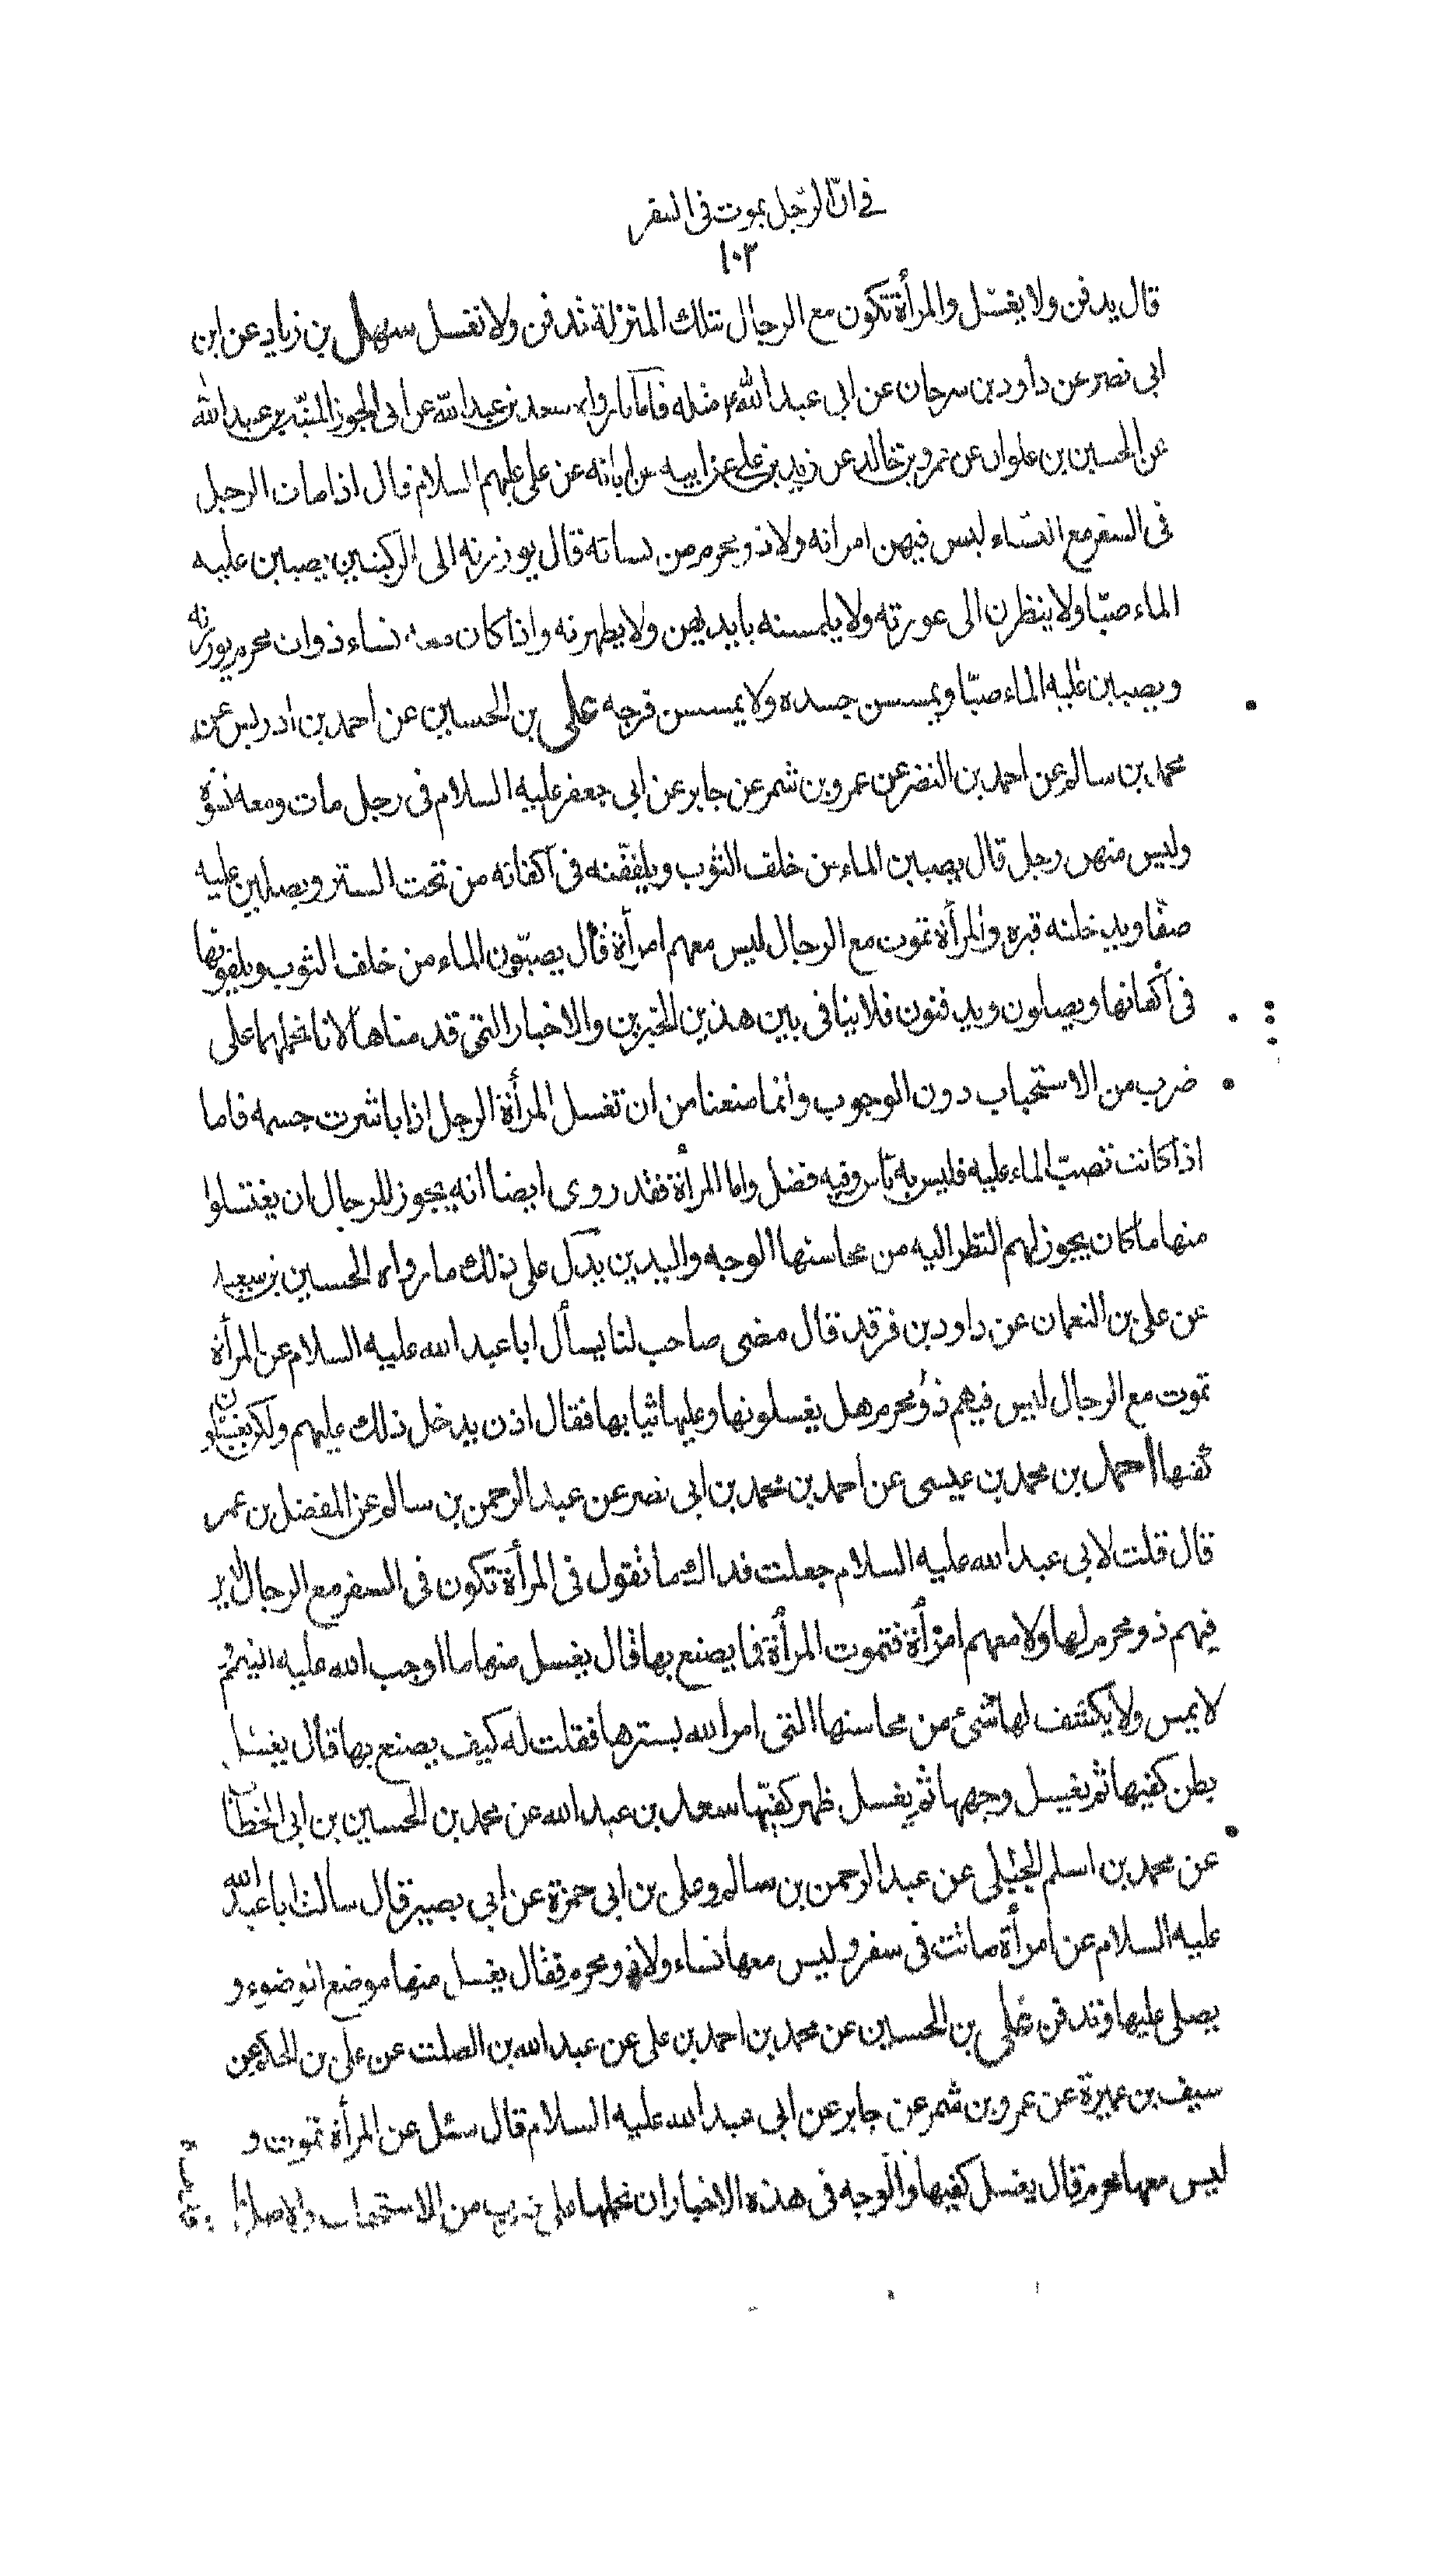 في ان الرّجل يموت فى السفر
١٠٣
قال يدفن ولا يغسّل والمرأة تكون مع الرجال بتلك المنزلة تدفن ولا تغسل سهل بن زياد عن ابن
ابى نصر عن داود بن سرحان عن ابى عبد الله ع مثله فاما ما رواه سعد بن عبد الله عن ابى الجوزا المنبّه بن عبد الله
عن الحسين بن علوان عن عمرو بن خالد عن زيد بن على عن ابيه عن ابائه عن على عليهم السلام قال اذا مات الرجل
فى السفر مع النساء ليس فيهن امرأته ولا ذو محرم من نسائه قال يوزرنه الى الركبتين يصببن عليه
الماء صبّا ولا ينظرن الى عورته ولا يلمسنه بايديهن ولا يطهرنه واذا كان معه نساء ذوات محرم يوزرنه
ويصببن عليه الماء صبّا ويمسسن جسده ولا يمسسن فرجه على بن الحسين عن احمد بن ادريس عن
محمد بن سالم عن احمد بن النضر عن عمرو بن شمر عن جابر عن ابى جعفر عليه السلام فى رجل مات ومعه نسوة
وليس منهن رجل قال يصببن الماء من خلف الثوب ويلففنه فى اكفانه من تحت الستر ويصلين عليه
صفّا ويدخلنه قبره والمرأة تموت مع الرجال ليس معهم امرأة قال يصبّون الماء من خلف الثوب ويلفونها
فى اكفانها ويصلون ويدفنون فلا ينافى بين هذين الخبرين والاخبار التى قدمناها لانا نحملهما على
ضرب من الاستحباب دون الوجوب وانما منعنا من ان تغسل المرأة الرجل اذا باشرت جسمه فاما
اذا كانت تصبّ الماء عليه فليس به بأس وفيه فضل واما المرأة فقد روى ايضا انه يجوز للرجال ان يغتسلوا
منها ما كان يجوز لهم النظر اليه من محاسنها الوجه واليدين يدل على ذلك ما رواه الحسين بن سعيد
عن على بن النعمان عن داود بن فرقد قال مضى صاحب لنا يسأل ابا عبد الله عليه السلام عن المرأة
تموت مع الرجال ليس فيهم ذو محرم هل يغسلونها وعليها ثيابها فقال اذن يدخل ذلك عليهم ولكن يغسلون
كفيها احمد بن محمد بن عيسى عن احمد بن محمد بن ابى نصر عن عبد الرحمن بن سالم عن المفضل بن عمر
قال قلت لابى عبد الله عليه السلام جعلت فداك ما تقول فى المرأة تكون فى السفر مع الرجال ليس
فيهم ذو محرم لها ولا معهم امرأة فتموت المرأة فما يصنع بها قال يغسل منها ما اوجب الله عليه التيمّم
لا يمس ولا يكشف لها شىء من محاسنها التى امر الله بسترها فقلت له كيف يصنع بها قال يغسل
بطن كفيها ثم يغسل وجهها ثم يغسل ظهر كفيّها سعد بن عبد الله عن محمد بن الحسين بن ابى الخطاب
عن محمد بن اسلم الجبلى عن عبد الرحمن بن سالم وعلى بن ابى حمزة عن ابى بصير قال سالت ابا عبد الله
عليه السلام عن امرأة ماتت فى سفر وليس معها نساء ولا ذو محرم فقال يغسل منها موضع الوضوء و
يصلى عليها وتدفن على بن الحسين عن محمد بن احمد بن على عن عبد الله بن الصلت عن على بن الحكم عن
سيف بن عميرة عن عمرو بن شمر عن جابر عن ابى عبد الله عليه السلام قال سئل عن المرأة تموت و
ليس معها محرم قال يغسل كفيها فالوجه فى هذه الاخبار ان نحملها على ضرب من الاستحباب